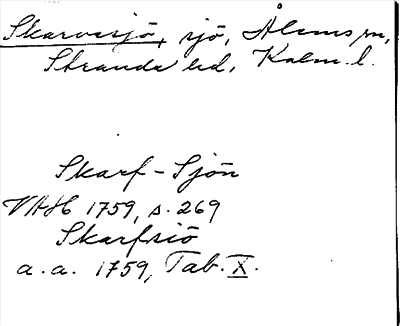 Skarvesjö, sjö, Ålems sn,
Stranda hd, Kalm. l.
Skarf-Sjön
VAH 1759, s. 269
Skarfsiö
a. a. 1759, Tab. X.